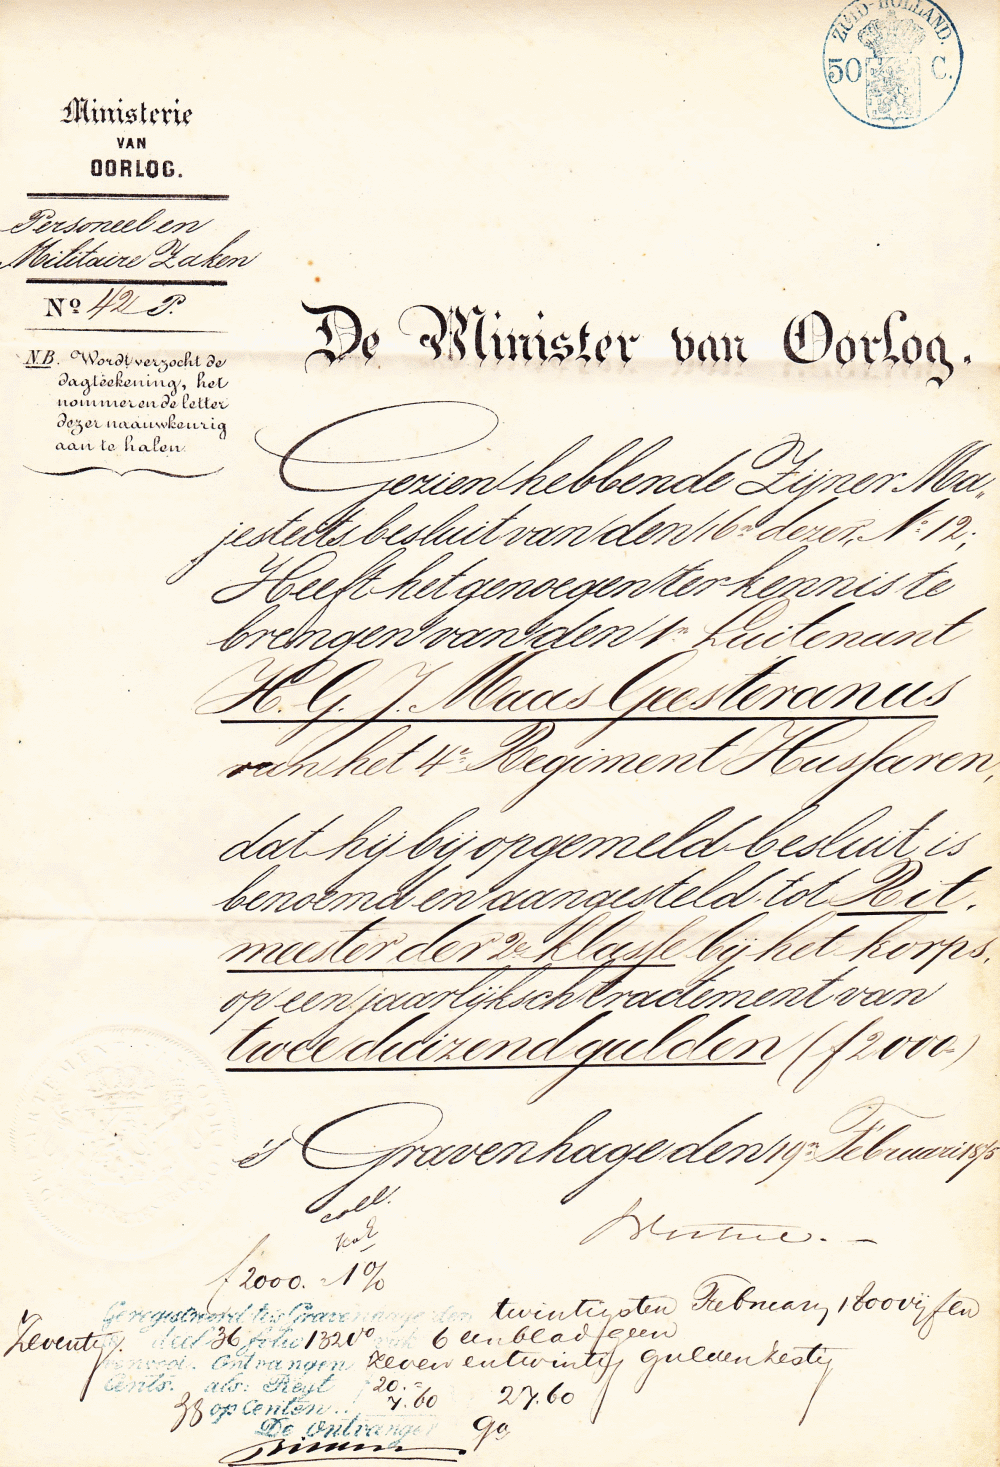 ZUID-HOLLAND.
50 C.
Ministerie
VAN
OORLOG.
Personeel en
Militaire Zaken
No 42 P.
N.B. Wordt verzocht de
dagteekening, het
nommer en de letter
dezer naauwkeurig
aan te halen.
De Minister van Oorlog.
Gezien hebbende Zijner Ma„
jesteits besluit van den 16n dezer, No 12;
Heeft het genoegen ter kennis te
brengen van den 1n Luitenant
H. G. J. Maas Geesteranus
van het 4e Regiment Hussaren,
dat hij bij opgemeld besluit is
benoemd en aangesteld tot Rit„
meester der 2e Klasse bij het korps,
op een jaarlijksch tractement van
twee duizend gulden (ƒ2000-)
's Gravenhage den 19n Februari 1875
coll.
ƒ2000. - 1%
Geregistreerd te 's Gravenhage den twintigsten February 1800 vijf en
Zeventig. deel 36 folio 132 vo vak 6 een blad geen
renvooi. Ontvangen zeven en twintig gulden zestig
Cents. als: Regt ƒ20.-
38 op Centen.. 7.60 27.60
De Ontvanger